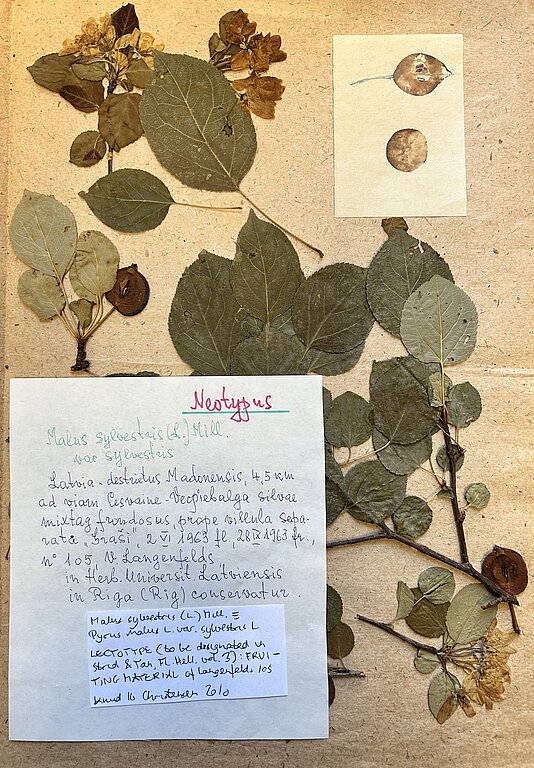 Neotypus
Malus sylvestris (L.) Mill.
var sylvestris
Latvia - destritus Madonensis, 4,5 km
ad viam Cesvaine - Vecpiebalga silvae
mixtag frondosus, prope villula sepa-
rata "Graši", 2 VI 1963 fl, 28 IX 1963 fr.,
n° 105, V. Langenfelds
in Herb. Universit. Latviensis
in Riga (Rig) conservatur.
Malus sylvestris (L.) Mill. ≡
Pyrus malus L. var. sylvestris L
LECTOTYPE (to be designated in
Strid & Tan, Fl. Hell. vol. 3): FRUI-
TING MATERIAL of Langenfelds 105
Knud Ib Christensen 2010